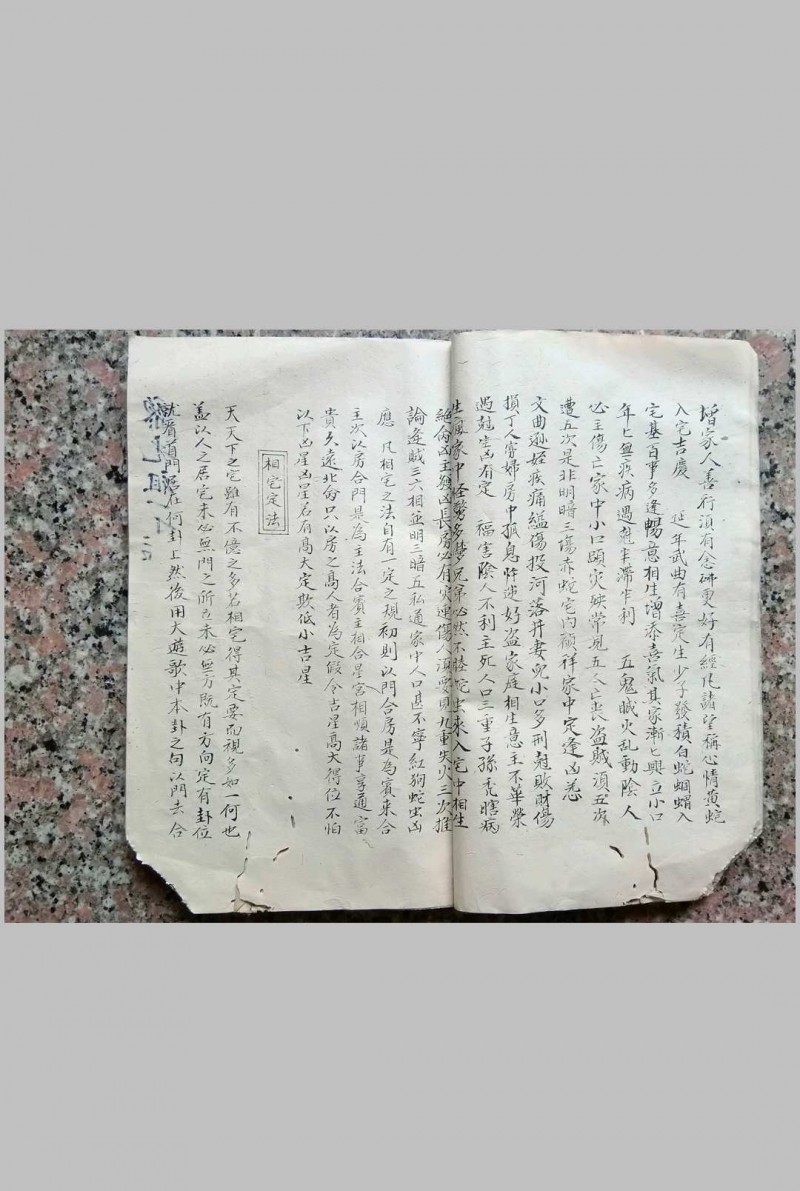 增家人善行須有念研更好有經凡諸望稱心情黃蛇
入宅吉慶 延年武曲有喜定生少子發積白蛇蝈蝟入
宅基百事多逢暢意相生增添喜氣其家漸匕興立小口
年匕無疾病遇尅年滯乍利 五鬼賊火乱動陰人
必主傷亡家中小口頭灾殃常見五人亡丧盗賊須五次
遭五次是非明暗三傷赤蛇宅内禎祥家中定逢凶恶
文曲遜姪疾痛縊傷投河落井妻兒小口多刑尅敗財傷
損丁人寡婦房中孤息奸迷好盗家庭相生意主不華榮
遇尅生凶有定 禍害陰人不利主死人口三重子孫秃瞎病
生風家中怪夢多梦兄弟必然不睦蛇虫來入宅中相生
絕命凶主發凶長房必有灾連傷人須要見九重失火三次推
論逢賊三六相並明三暗五私通家中人口甚不寧紅狗蛇虫凶
應 凡相宅之法自有一定之規初則以門合房是為賓來合
主次以房合門是為主法合賓主相合星宫相順諸事享通富
貴久遠北倘只以房之高人者為定假令吉星高大得位不怕
以下凶星凶星名有高大定欺低小吉星
相宅定法
夫天下之宅雖有不億之多若相宅得其定要而視多如一何也
盖以人之居宅未必無門之所在未必無方既有方向定有卦位
就看在何卦上然後用大遊歌中本卦之句以門去合